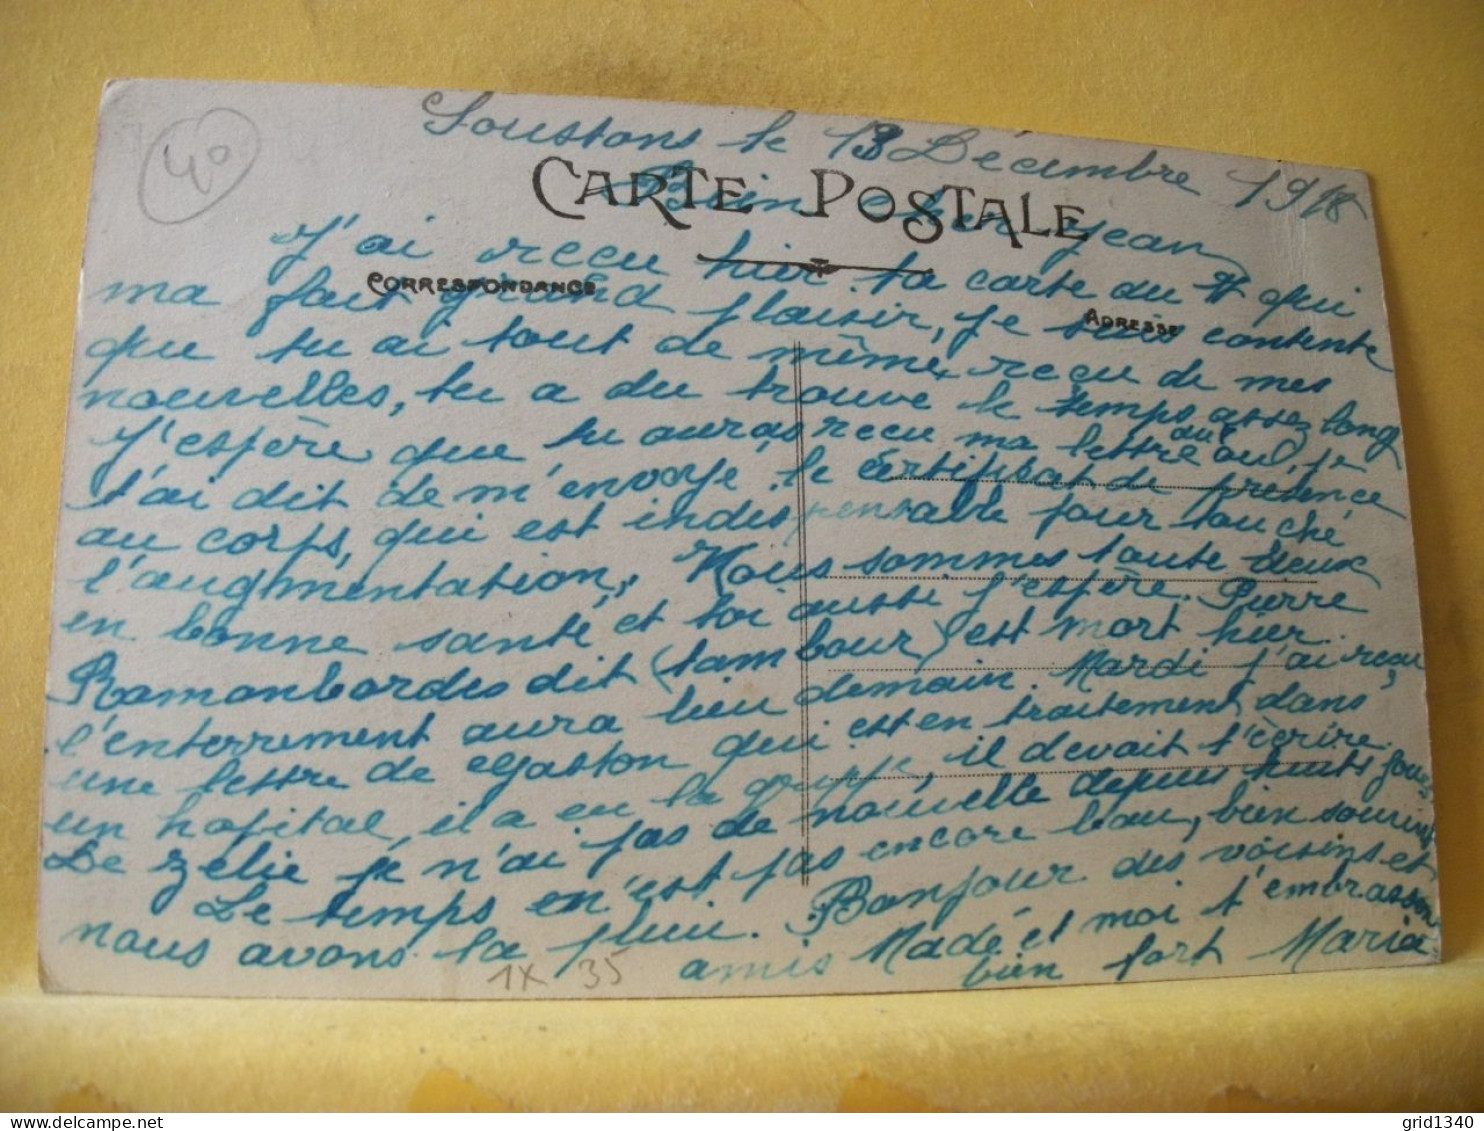 40
Soustons le 13 Décembre 1918
CARTE POSTALE
Bien cher Jean
J'ai recu hier ta carte du qui
CORRESPONDANCE
ma fait grand plaisir, je suis contente
ADRESSE
que tu ai tout de même recu de mes
nouvelles, tu a du trouve le temps assez long
J'espère que tu auras recu ma lettre ou je
t'ai dit de m'envoye le certificat de presence
au corps, qui est indispensable pour touché
l'augmentation, Nous sommes toute deux
en bonne santé et toi aussi j'espère. Pierre
Ramonbordes dit (tambour) est mort hier.
l'enterrement aura lieu demain. Mardi j'ai recu
une lettre de Gaston qui est en traitement dans
un hopital, il a eu la grippe, il devait t'écrire.
De Zelie je n'ai pas de nouvelle depuis huits jours
Le temps en'est pas encore beau, bien souvent
nous avons la pluie. Bonjour des voisins et
amis Nadé et moi t'embrassons
bien fort Maria
1X 35
grid1340